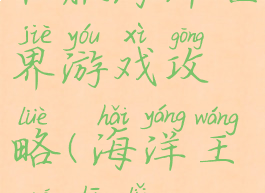 jiè yóu xì gōng
界游戏攻
lüè hǎi yáng wáng
略(海洋王